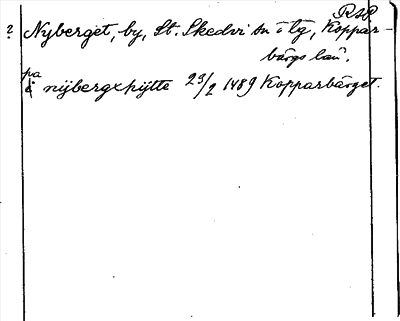 RAP
? Nyberget, by, St. Skedvi sn o tg, Koppar-
bärgs län.
pa
å nijbergxhijtte 23/2 1489 Kopparbärget.